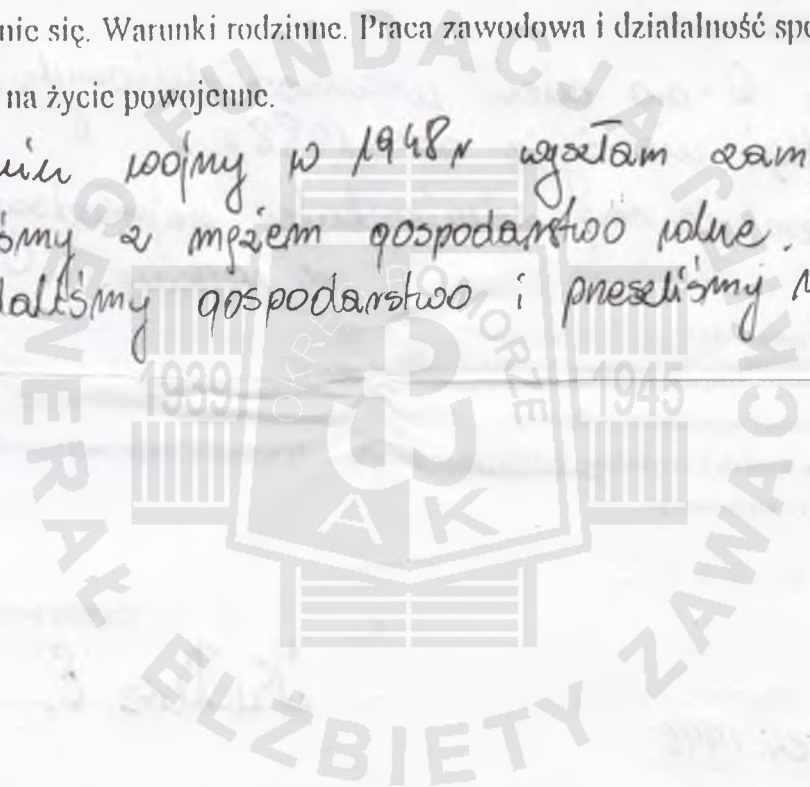 nie się. Warunki rodzinne. Praca zawodowa i działalność spo
na życie powojenne.
wojny w 1948 r wyszłam zam
śmy z mężem gospodarstwo rolne.
daliśmy gospodarstwo i przeszliśmy
FUNDACJA
GENERAŁ ELŻBIETY ZAWACK
OKRĘG POMORZE
1939 1945
AK